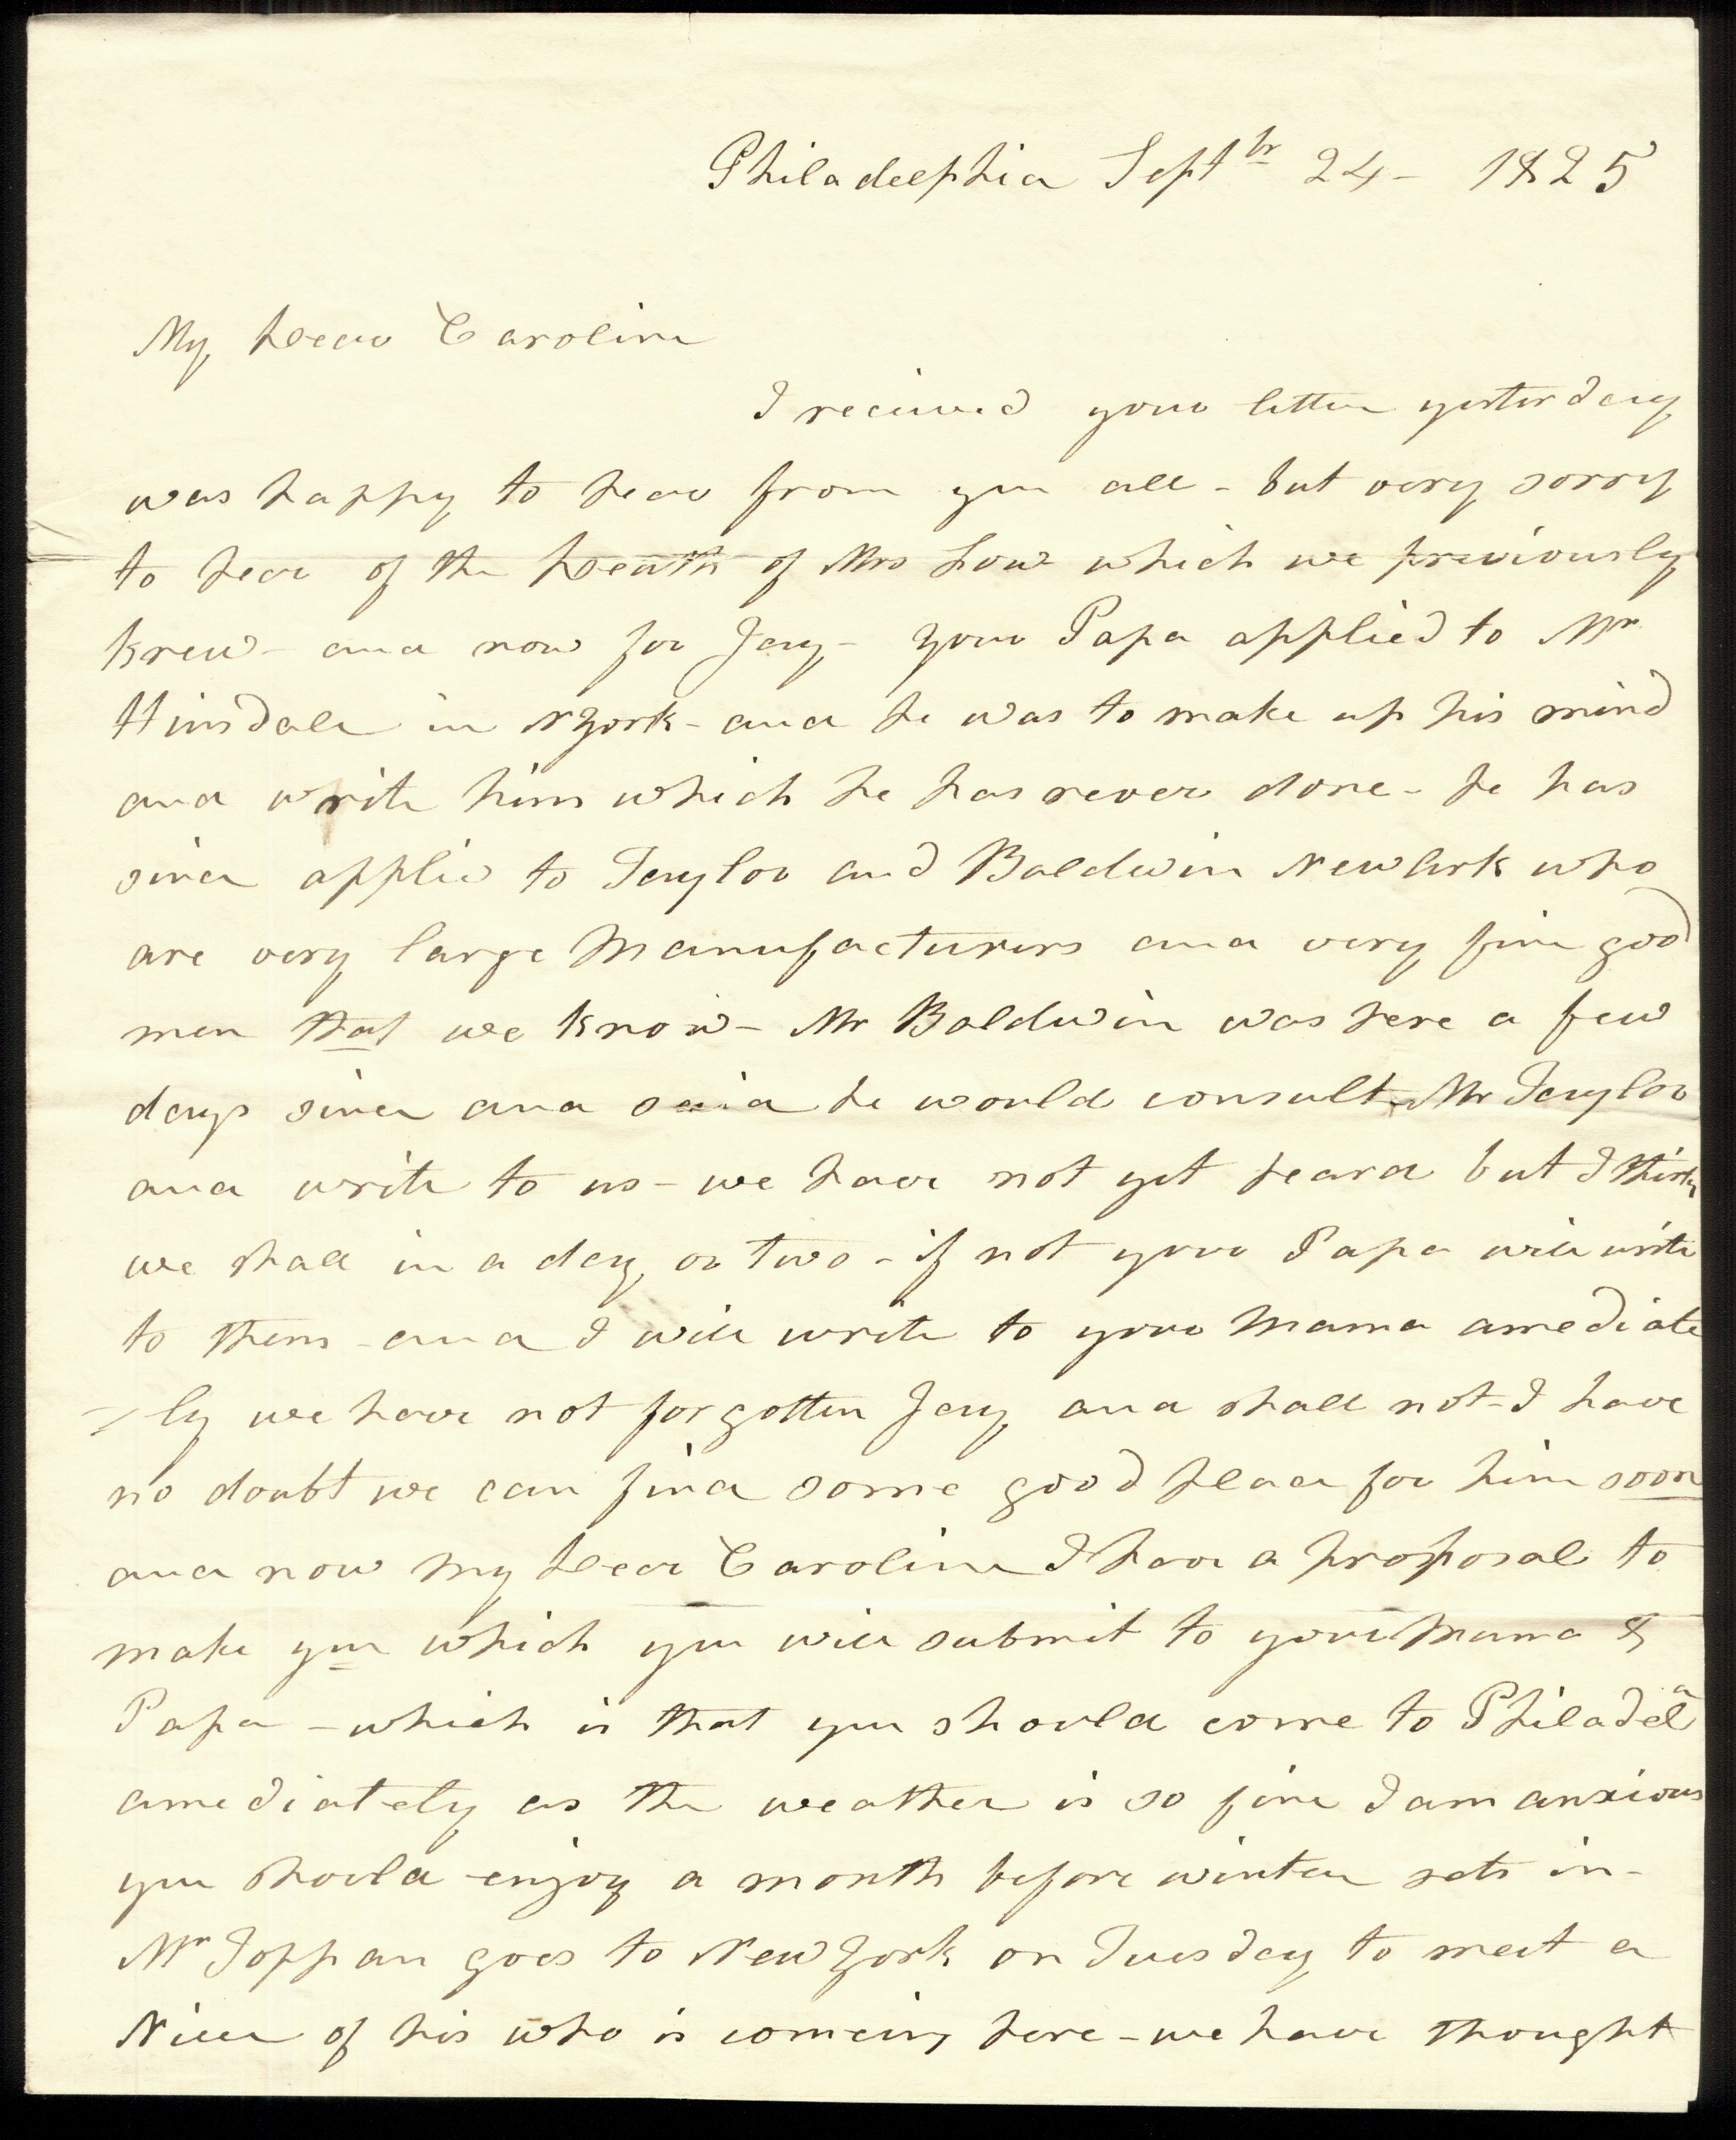 Philadelphia Sept^br 24 - 1825
My Dear Caroline
I received your letter yesterday
was happy to hear from you all - but very sorry
to hear of the Death of Mrs Low which we previously
knew - and now for Jay - your Papa applied to Mr
Hinsdale in N York - and he was to make up his mind
and write him which he has never done - he has
since applied to Taylor and Baldwin NewArk who
are very large Manufacturers and very fine good
men that we know - Mr Baldwin was here a few
days since and said he would consult Mr Taylor
and write to us - we have not yet heard but I think
we shall in a day or two - if not your Papa will write
to them - and I will write to your Mama amediate
=ly we have not forgotten Jay and shall not - I have
no doubt we can find some good place for him soon
and now my Dear Caroline I have a proposal to
make you which you will submit to your Mama &
Papa - which is that you should come to Philadel^a
amediately as the weather is so fine I am anxious
you should enjoy a month before winter sets in -
Mr Toppan goes to New York on Tuesday to meet a
Niece of his who is comeing here - we have thought